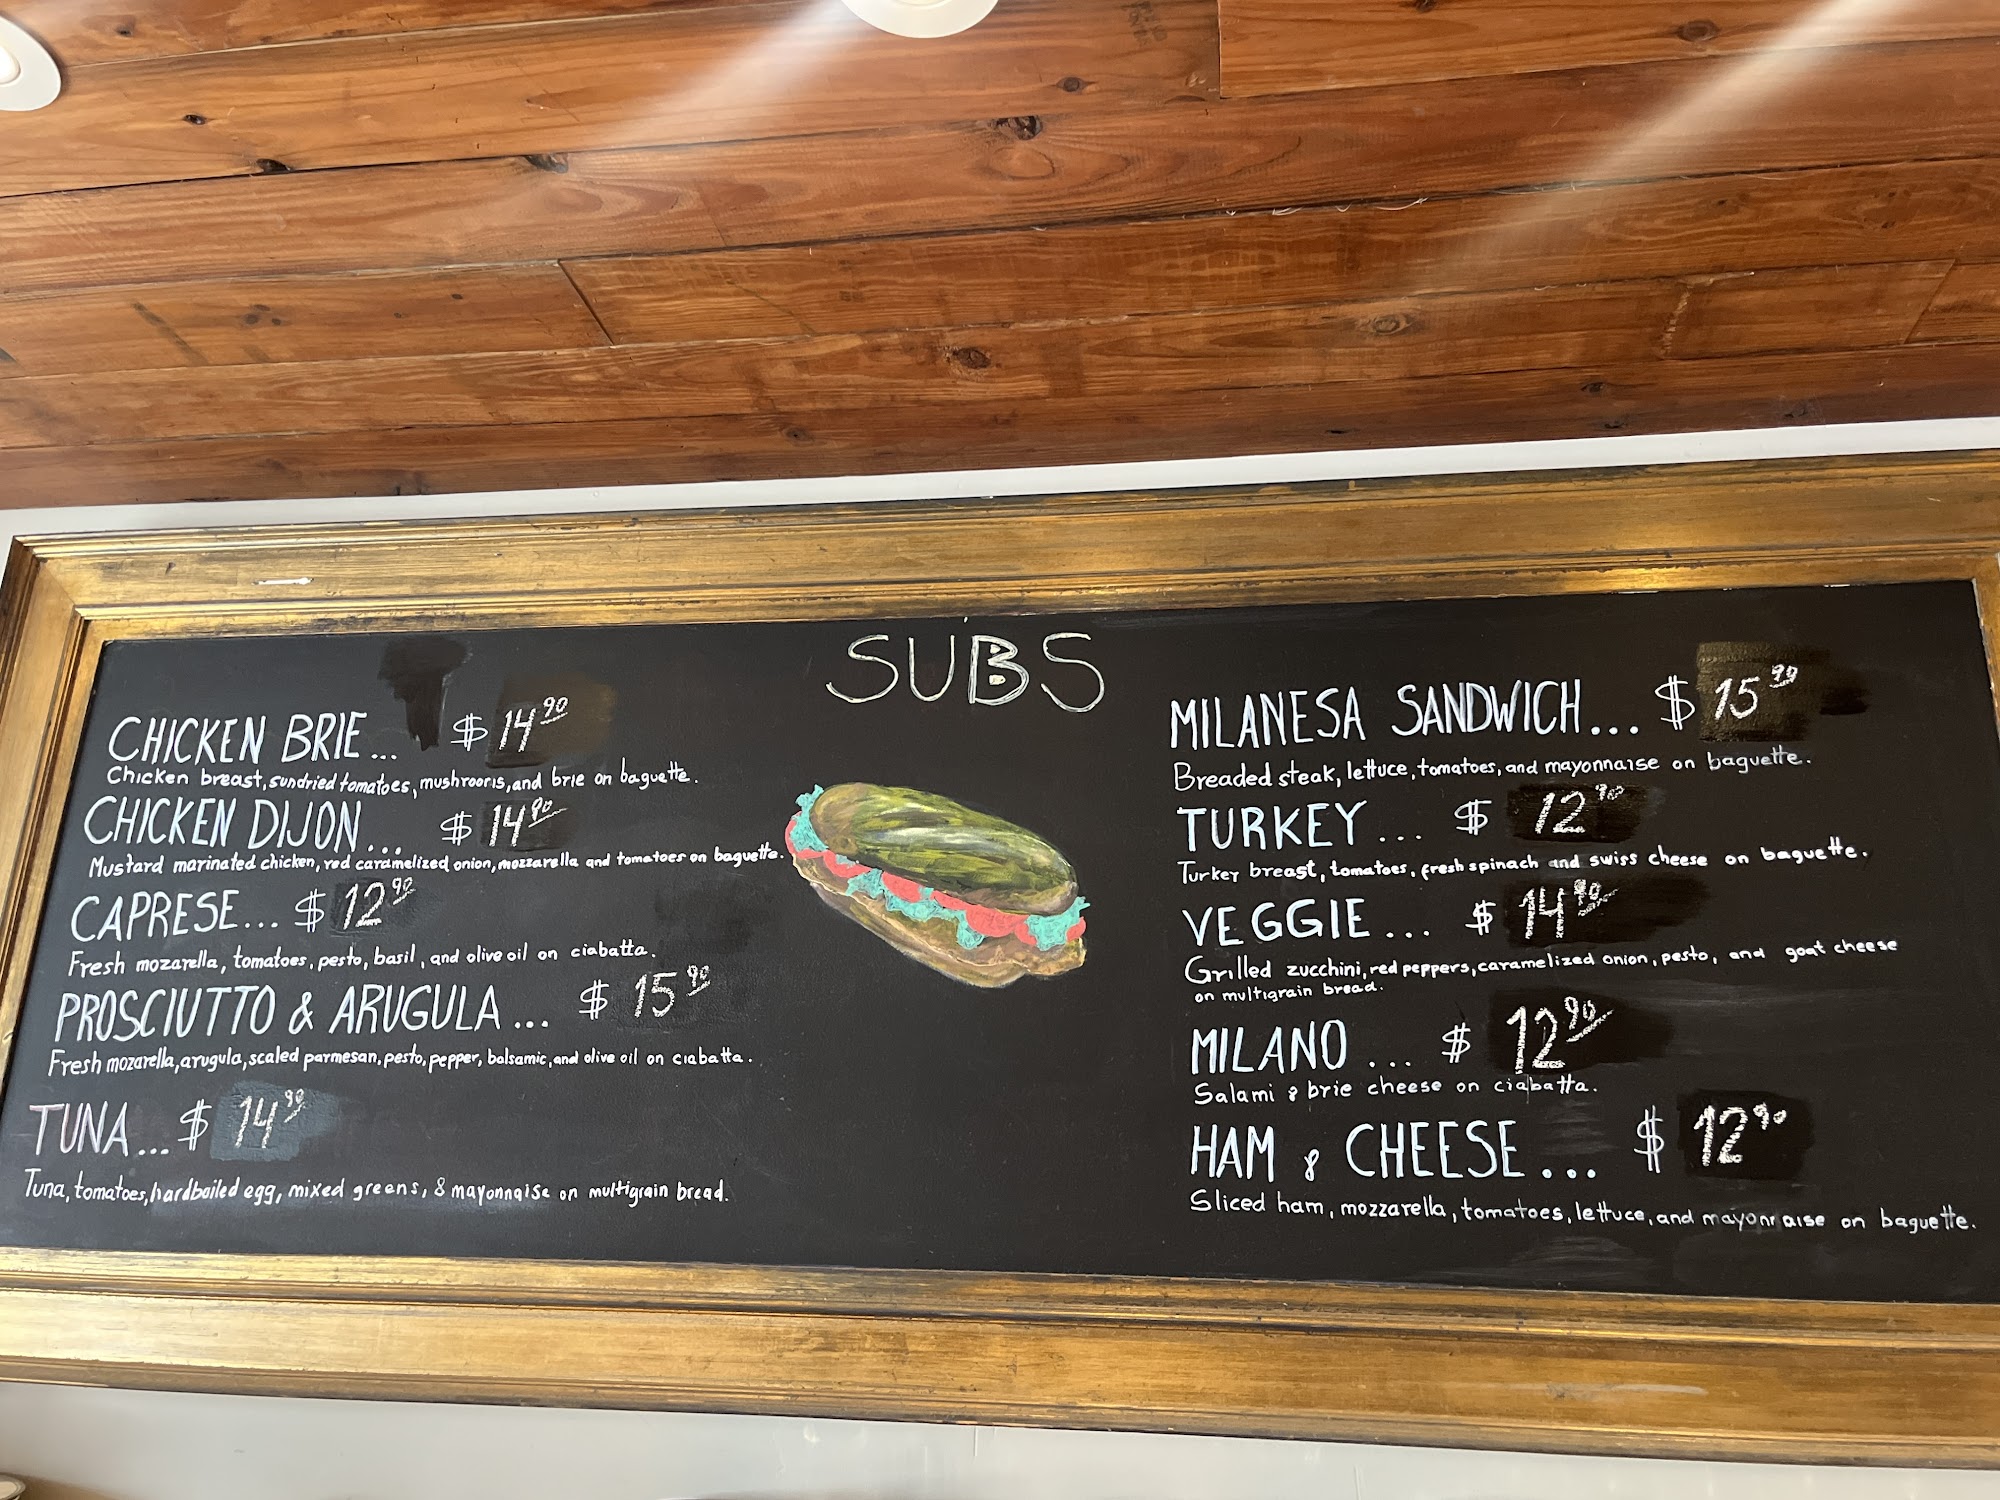 SUBS
CHICKEN BRIE... $ 14 90
Chicken breast, sundried tomatoes, mushrooms, and brie on baguette.
CHICKEN DIJON... $ 14 90
Mustard marinated chicken, red caramelized onion, mozzarella and tomatoes on baguette.
CAPRESE... $ 12 90
Fresh mozarella, tomatoes, pesto, basil, and olive oil on ciabatta.
PROSCIUTTO & ARUGULA... $ 15 90
Fresh mozarella, arugula, scaled parmesan, pesto, pepper, balsamic, and olive oil on ciabatta.
TUNA... $ 14 90
Tuna, tomatoes, hardboiled egg, mixed greens, & mayonnaise on multigrain bread.
MILANESA SANDWICH... $ 15 90
Breaded steak, lettuce, tomatoes, and mayonnaise on baguette.
TURKEY... $ 12 90
Turkey breast, tomatoes, fresh spinach and swiss cheese on baguette.
VEGGIE... $ 14 90
Grilled zucchini, red peppers, caramelized onion, pesto, and goat cheese
on multigrain bread.
MILANO... $ 12 90
Salami & brie cheese on ciabatta.
HAM & CHEESE... $ 12 90
Sliced ham, mozzarella, tomatoes, lettuce, and mayonnaise on baguette.